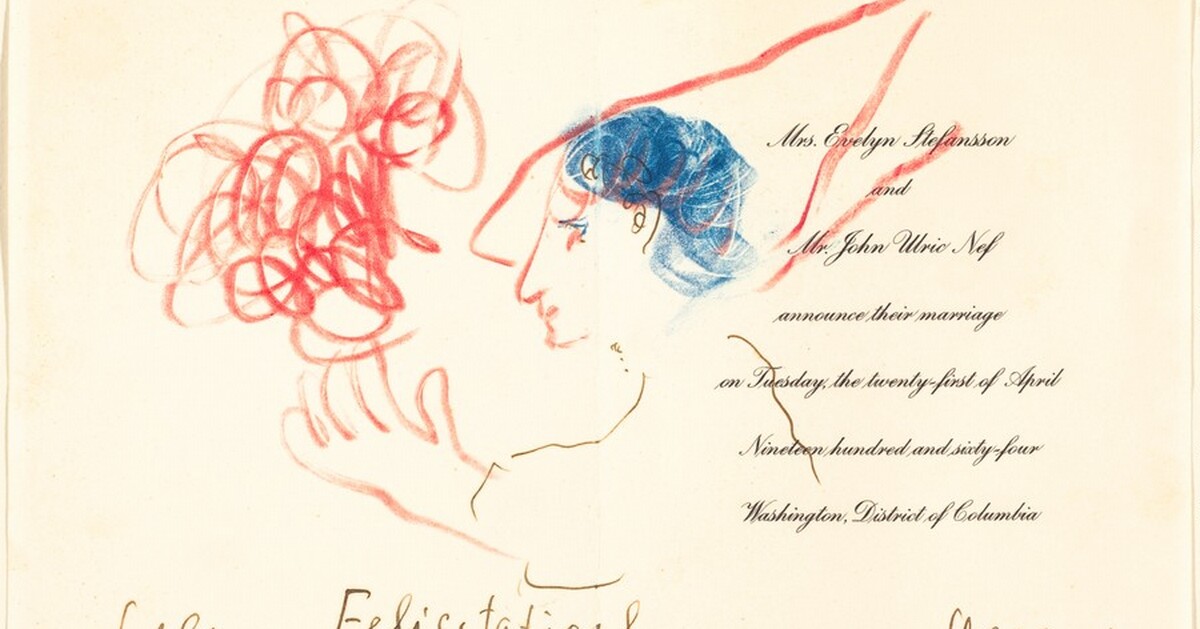 Mrs. Evelyn Stefansson
and
Mr. John Ulric Nef
announce their marriage
on Tuesday, the twenty-first of April
Nineteen hundred and sixty-four
Washington, District of Columbia